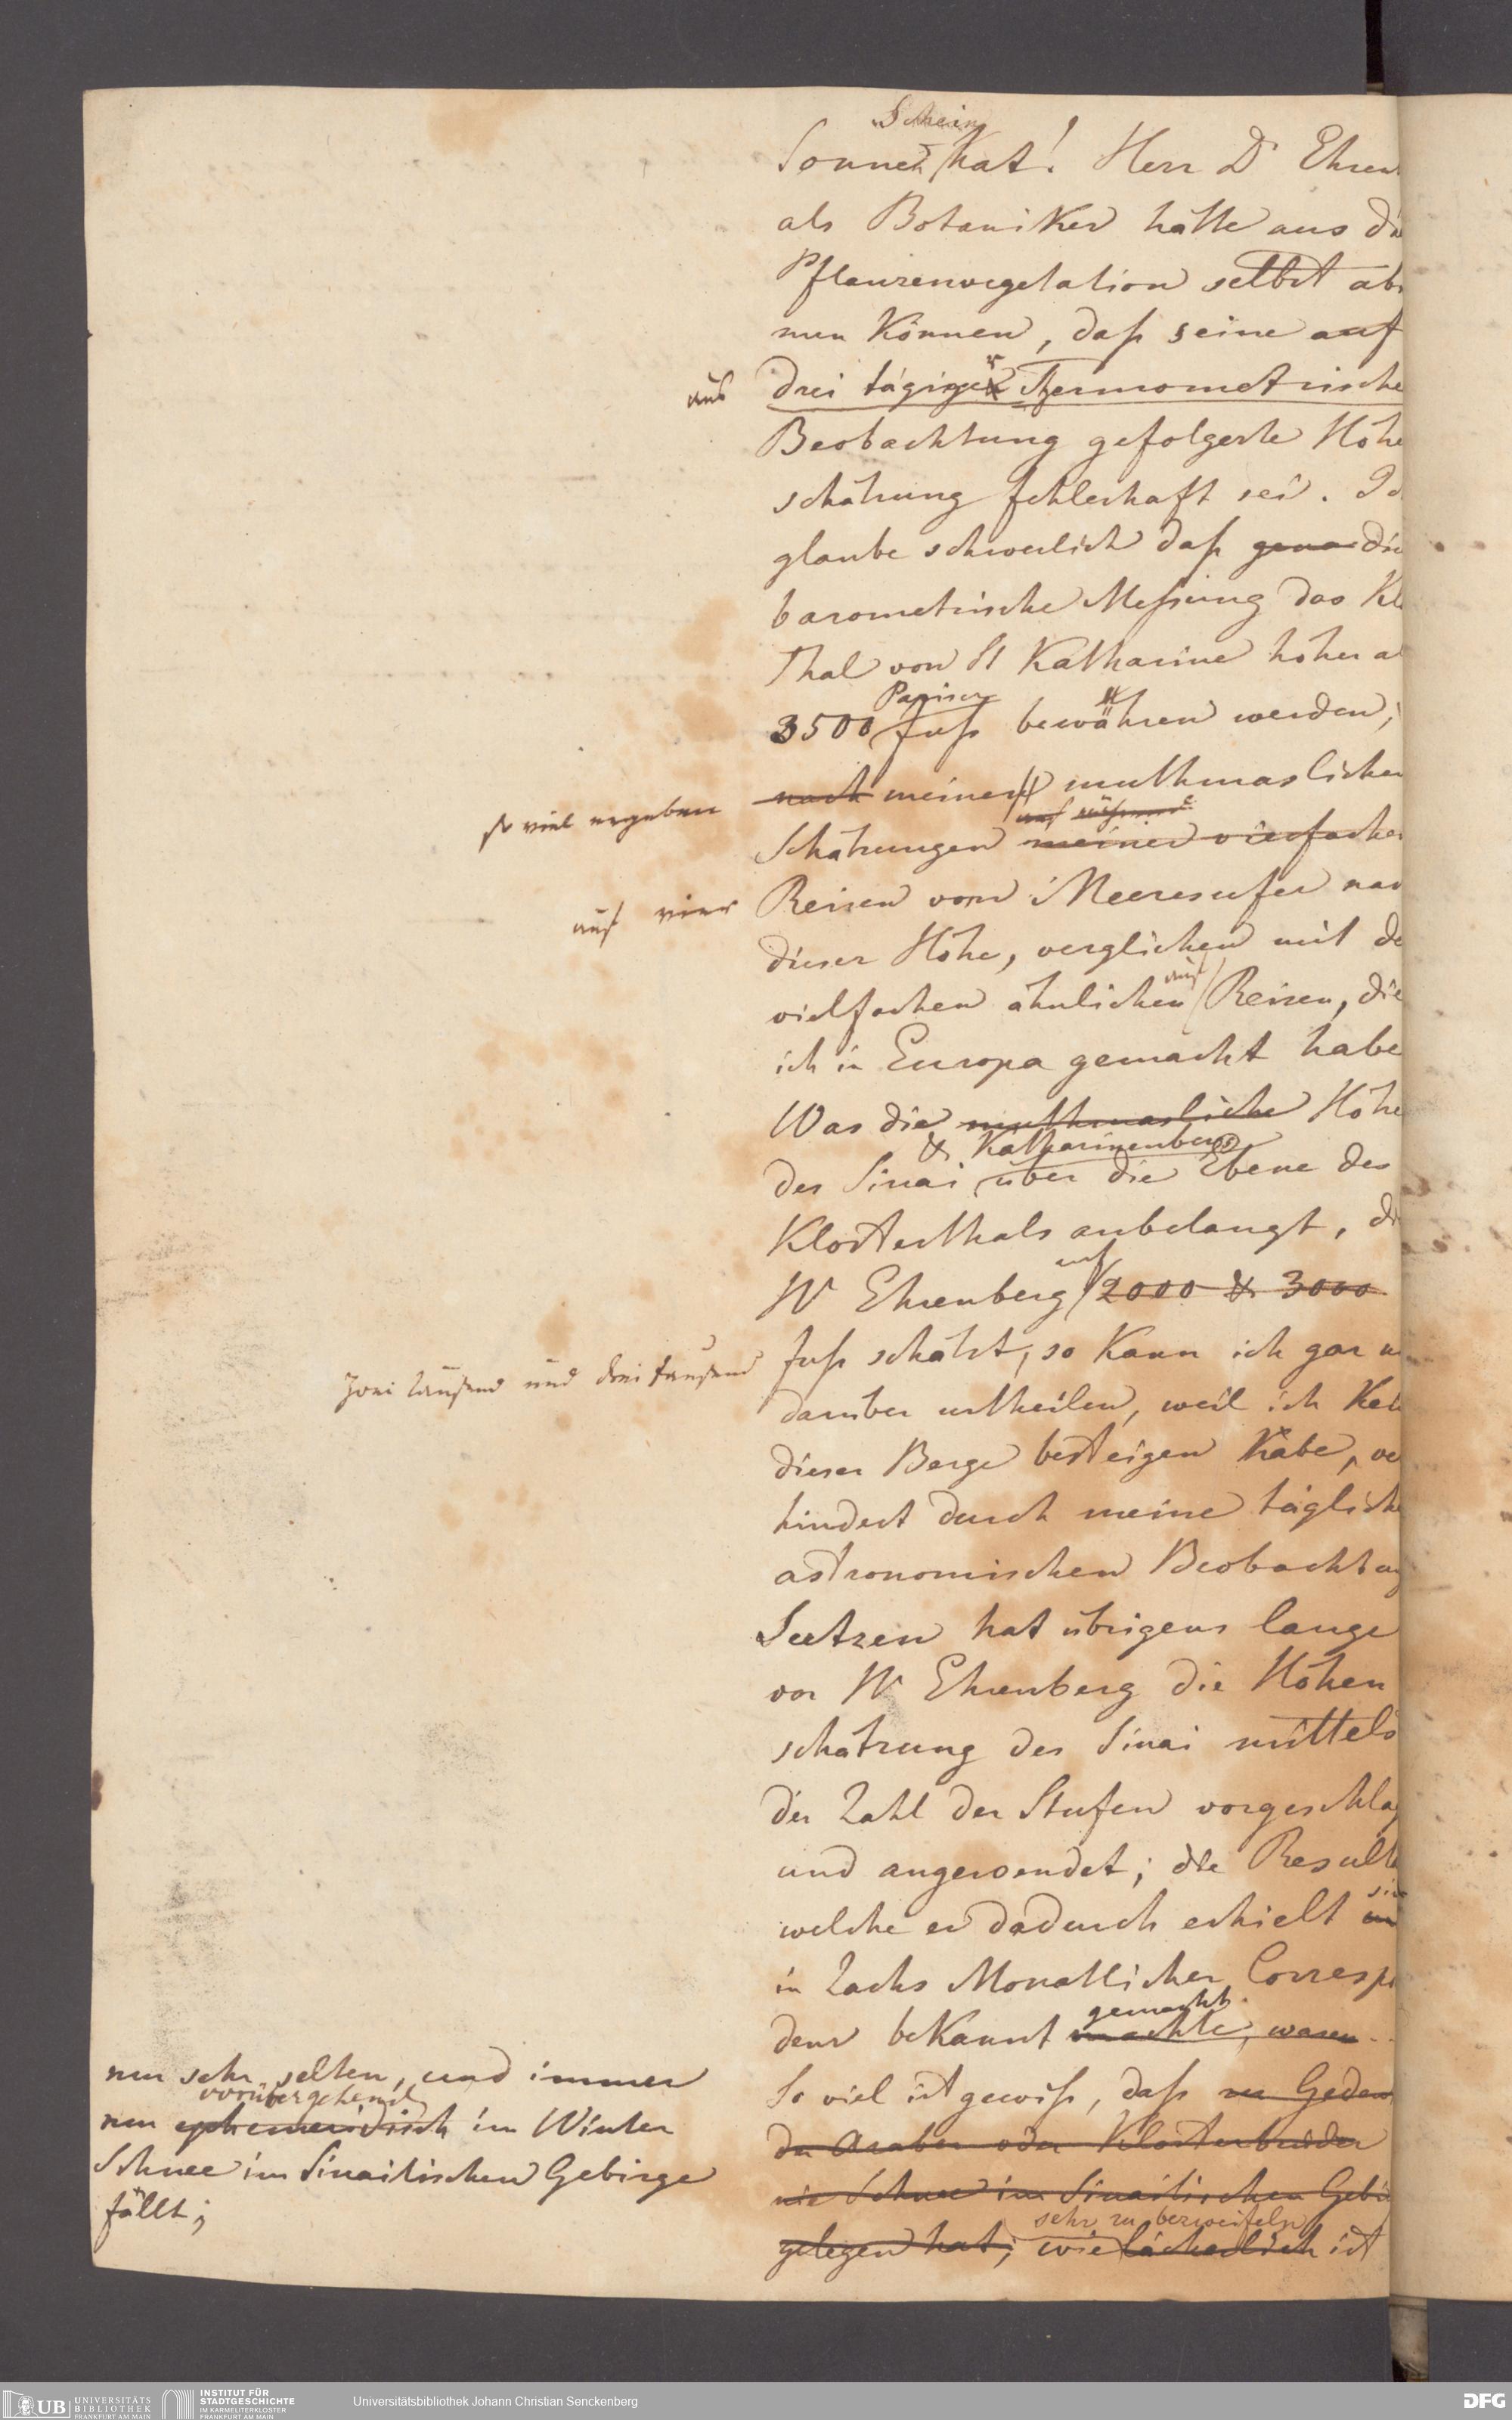 Schein
Sonnen hat! Herr Dr Ehren
als Botaniker hätte aus die
Pflanzenvegetation selbst ab
men können, daß seine auf
aus drei tägiger Thermometrische
Beobachtung gefolgerte Höhe
schätzung fehlerhaft sei. Ich
glaube schwerlich daß genaue die
barometrische Meßung das Klo
Thal von St Katharine höher al
Pariser
3500 fuß bewähren werden;
so viel ergeben nach meinen muthmaslichen
auf während
Schätzungen meiner vierfachen
auf vier Reisen vom Meeresufer nach
dieser Höhe, verglichen mit de
vielfachen ähnlichen Reisen, die
ich in Europa gemacht habe
Was die muthmasliche Höhe
& Katharinenberg
des Sinai über die Ebene des
Klosterthals anbelangt, di
auf
Hr Ehrenberg 2000 & 3000
zwei tausend und drei tausend fuß schätzt, so kann ich gar n
darüber urtheilen, weil ich kei
dieser Berge bestiegen habe, ve
hindert durch meine tägliche
astronomischen Beobachtung
Seetzen hat übrigens lange
vor Hr Ehrenberg die Höhen
schätzung des Sinai mittels
der Zahl der Stufen vorgeschlag
und angewendet; die Resulta
sin
welche er dadurch erhielt
in Zachs Monatlicher Correspo
gemacht.
denz bekannt machte, waren
So viel ist gewiß, daß zu Geden
der Araber oder Klosterbrüder
nie Schnee im Sinaitischen Gebir
sehr zu bezweifeln
gelegen hat; wie lächerlich ist
nur sehr selten, und immer
vorübergehend
nur ephemeridisch im Winter
Schnee im Sinaitischen Gebirge
fällt;
UB UNIVERSITÄTS BIBLIOTHEK FRANKFURT AM MAIN
INSTITUT FÜR STADTGESCHICHTE IM KARMELITERKLOSTER FRANKFURT AM MAIN
Universitätsbibliothek Johann Christian Senckenberg
DFG